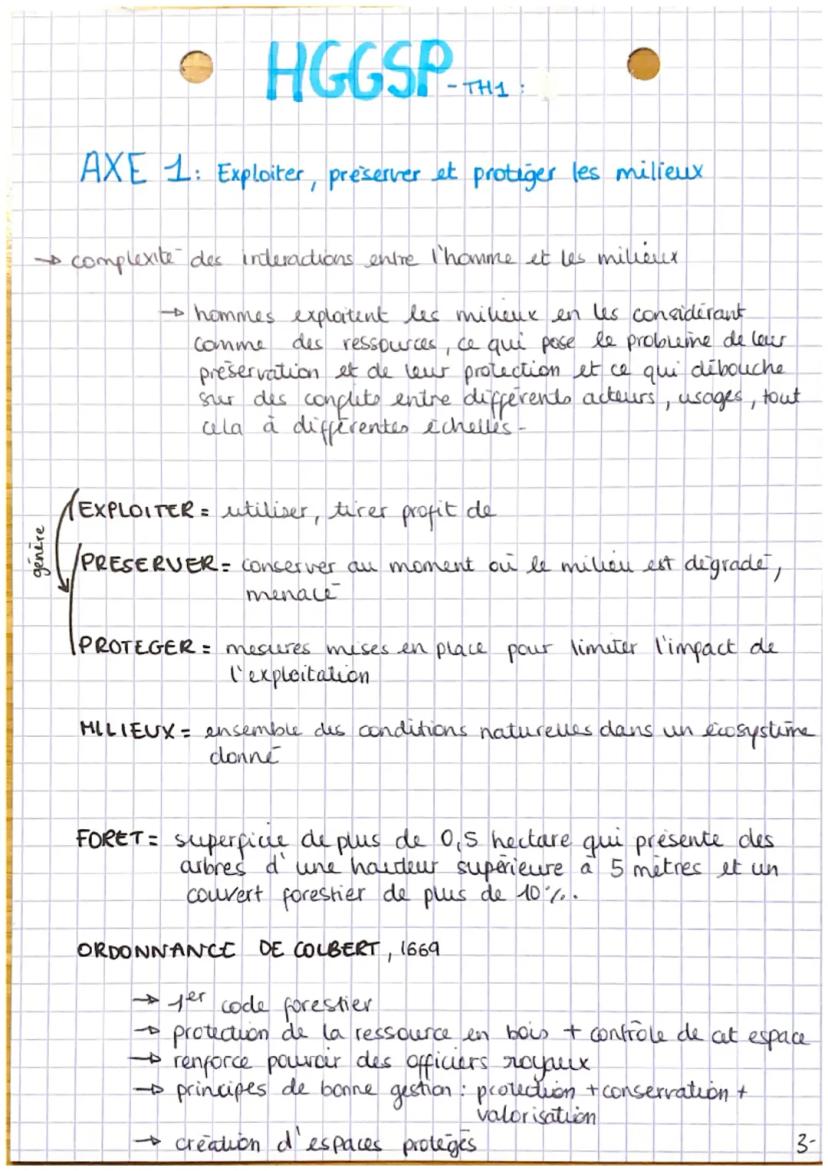 HGGSP - TH1 :
AXE 1: Exploiter, préserver et protéger les milieux
→ complexité des interactions entre l'homme et les milieux
→ hommes exploitent les milieux en les considérant
comme des ressources, ce qui pose le problème de leur
préservation et de leur protection et ce qui débouche
sur des conflits entre différents acteurs, usages, tout
cela à différentes échelles -
EXPLOITER = utiliser, tirer profit de
génère
PRESERVER = conserver au moment où le milieu est dégradé,
menacé
PROTEGER = mesures mises en place pour limiter l'impact de
l'exploitation
MILIEUX = ensemble des conditions naturelles dans un écosystème
donné
FORET = superficie de plus de 0,5 hectare qui présente des
arbres d'une hauteur supérieure à 5 mètres et un
couvert forestier de plus de 10%.
ORDONNANCE DE COLBERT, 1669
→ 1er code forestier
→ protection de la ressource en bois + contrôle de cet espace
→ renforce pouvoir des officiers royaux
→ principes de bonne gestion : protection + conservation +
valorisation
→ création d'espaces protégés
3-